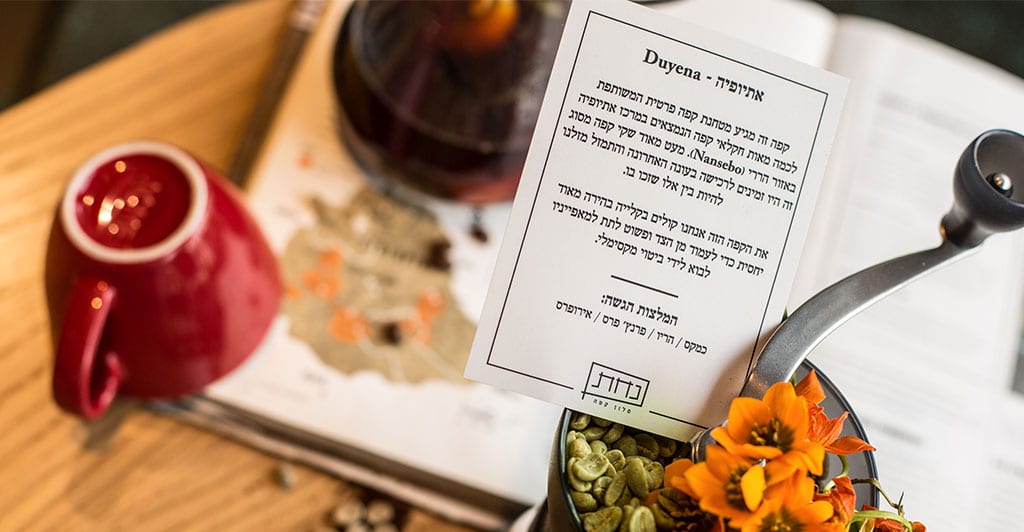 אתיופיה - Duyena
קפה זה מגיע מטחנת קפה פרטית המשותפת
לכמה מאות חקלאי קפה הנמצאים במרכז אתיופיה
באזור הררי (Nansebo). מעט מאוד שקי קפה מסוג
זה היו זמינים לרכישה בעונה האחרונה והתמזל מזלנו
להיות בין אלו שזכו בו.
את הקפה הזה אנחנו קולים בקלייה בהירה מאוד
יחסית כדי לעמוד מן הצד ופשוט לתת למאפייניו
לבוא לידי ביטוי מקסימלי.
המלצות הגשה:
כמקס / הריו / פרנץ׳ פרס / אירופרס
נחת
סלון קפה